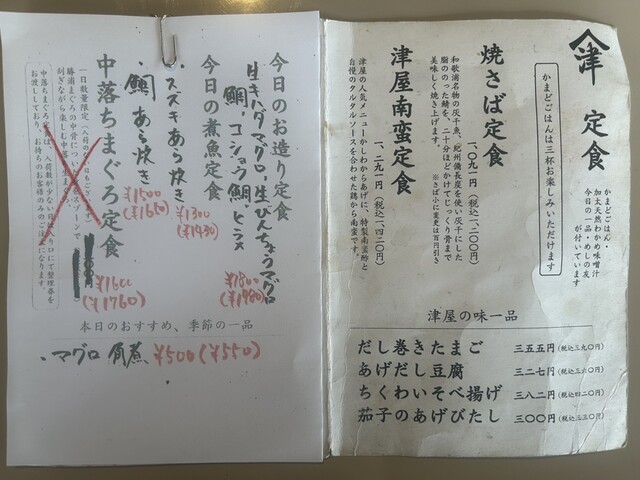 津 定食
かまどごはん・
加太天然わかめ味噌汁
今日の一品・めしの友
が付いています
かまどごはんは三杯お楽しみいただけます
焼さば定食
一、〇九一円（税込一、二〇〇円）
和歌浦名物の灰干魚、紀州備長度を使い灰干しした
脂ののった鯖を、二十分ほどかけてじっくり骨まで
美味しく焼き上げます。
※さば小に変更は百円引き
津屋南蛮定食
一、二九一円（税込一、四二〇円）
津屋の人気メニューかしわからあげに、特製南蛮酢と
自慢のタルタルソースを合わせた鶏から南蛮です。
津屋の味一品
だし巻きたまご 三五五円（税込三九〇円）
あげだし豆腐 三二七円（税込三六〇円）
ちくわいそべ揚げ 三八二円（税込四二〇円）
茄子のあげびたし 三〇〇円（税込三三〇円）
今日のお造り定食
生キハダマグロ、生びんちょうマグロ
鯛、コショウ鯛、ヒラメ
¥1800
(¥1980)
今日の煮魚定食
・スズキあら炊き
¥1300
(¥1430)
・鯛あら炊き
¥1500
(¥1650)
中落ちまぐろ定食
¥1600
(¥1760)
一日数量限定
勝浦まぐろの中骨に
スプーンで
本日のおすすめ、季節の一品
・マグロ角煮 ¥500(¥550)